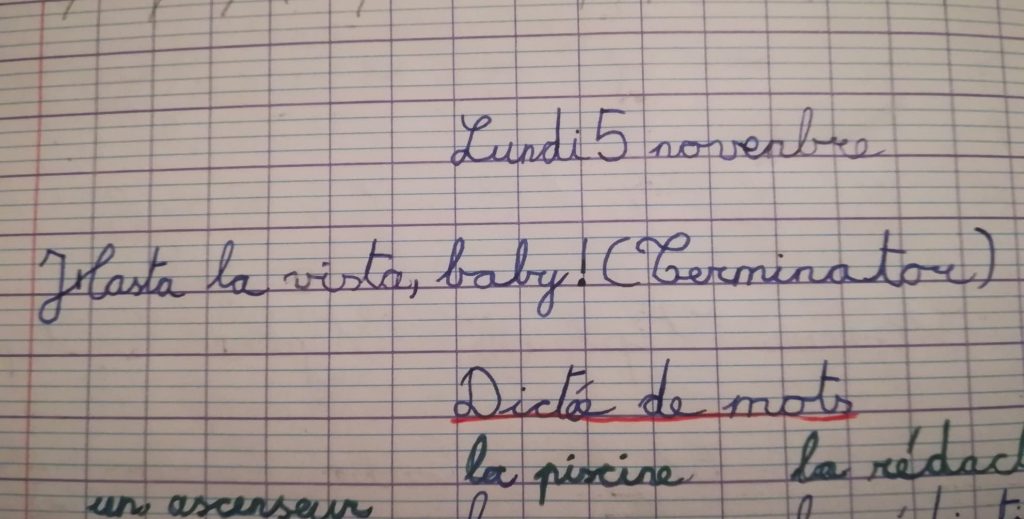 Lundi 5 novenbre
Hasta la vista, baby! (Terminator)
Dictée de mots
la piscine la rédac
un ascenseur